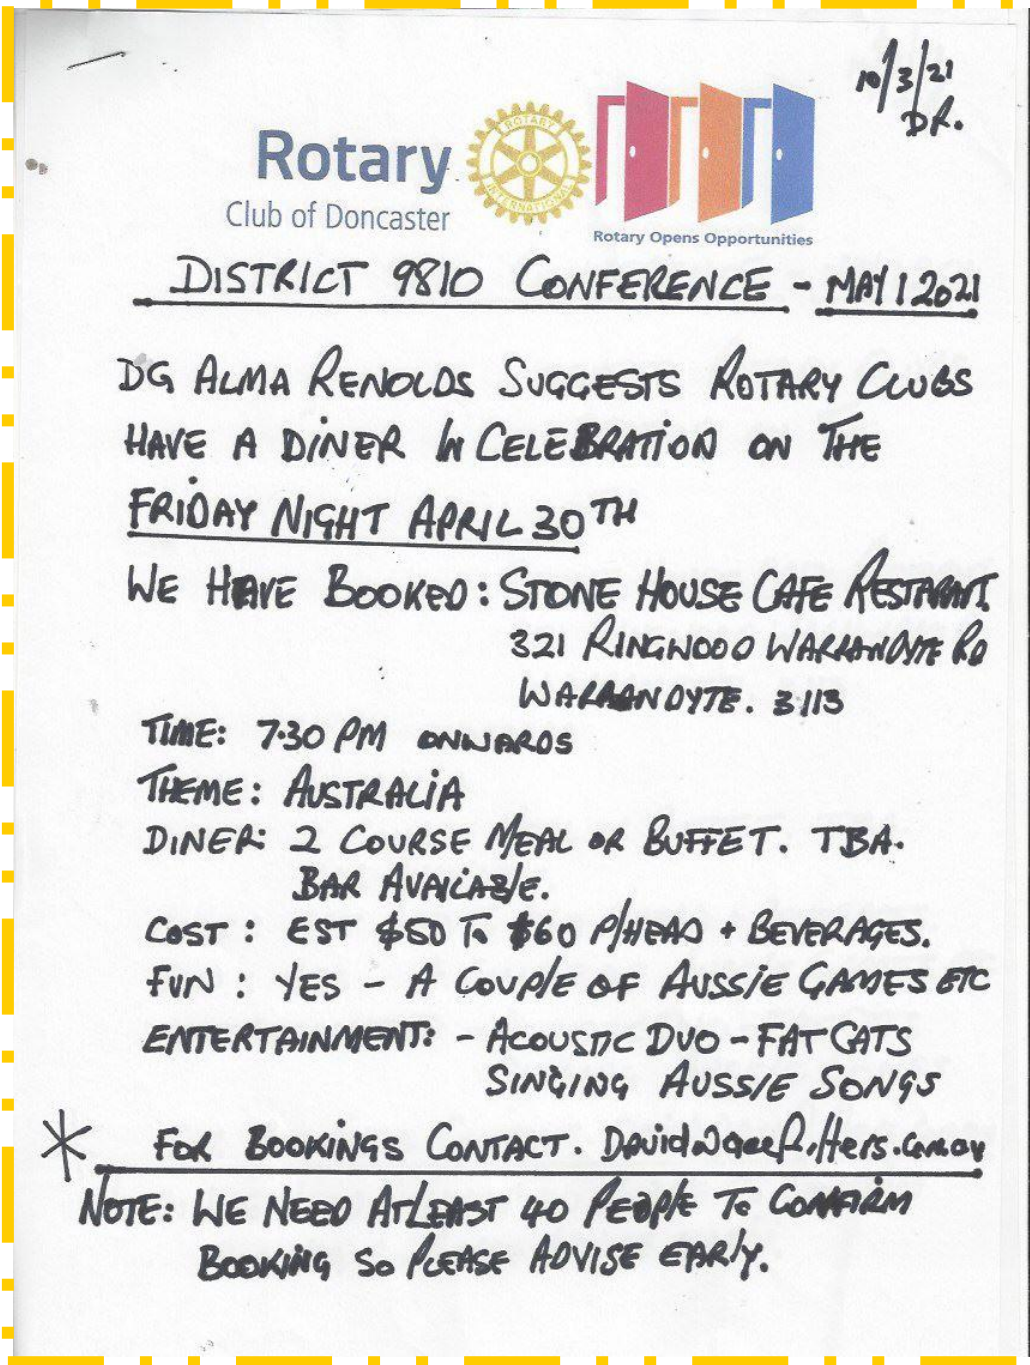 10/3/21
DR.
Rotary
Club of Doncaster
ROTARY
INTERNATIONAL
Rotary Opens Opportunities
DISTRICT 9810 CONFERENCE - MAY 1 2021
DG ALMA RENOLDS SUGGESTS ROTARY CLUBS
HAVE A DINER IN CELEBRATION ON THE
FRIDAY NIGHT APRIL 30TH
WE HAVE BOOKED: STONE HOUSE CAFE
321 RINGWOOD WARRANDYTE RD
WARRANDYTE. 3113
TIME: 7.30 PM ONWARDS
THEME: AUSTRALIA
DINER: 2 COURSE MEAL OR BUFFET. TBA.
BAR AVAILABLE.
COST: EST $50 TO $60 P/HEAD + BEVERAGES.
FUN: YES - A COUPLE OF AUSSIE GAMES ETC
ENTERTAINMENT: - ACOUSTIC DUO - FAT CATS
SINGING AUSSIE SONGS
* FOR BOOKINGS CONTACT.
NOTE: WE NEED ATLEAST 40 PEOPLE TO CONFIRM
BOOKING SO PLEASE ADVISE EARLY.